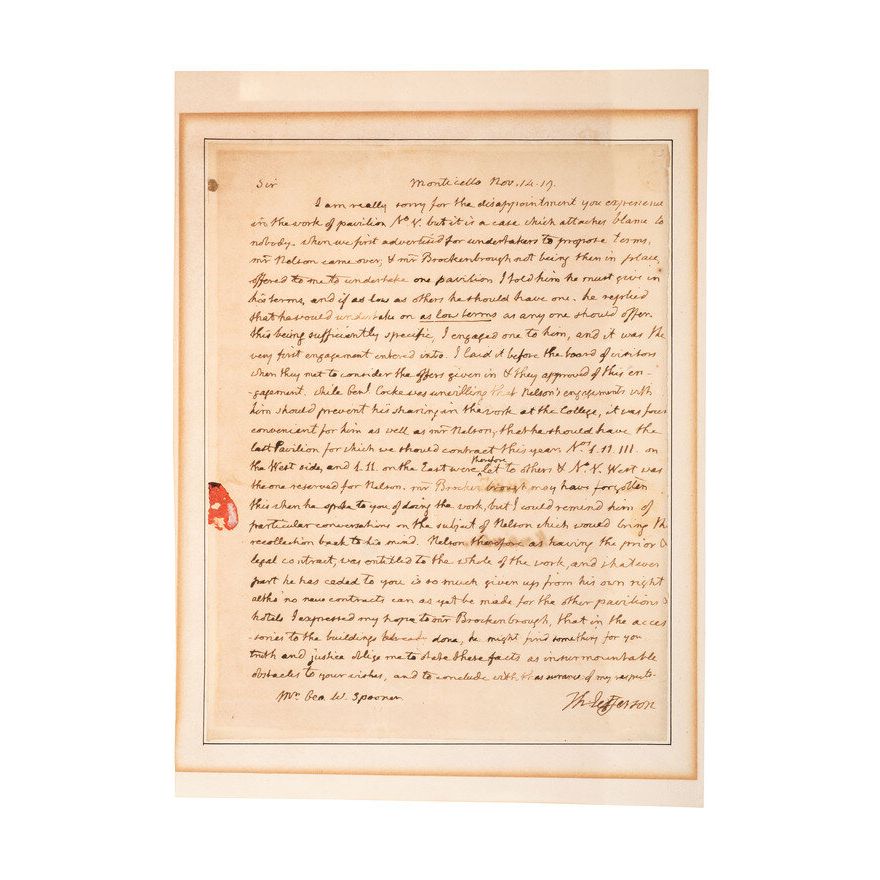 Sir Monticello Nov. 14. 19.
I am really sorry for the disappointment you experience
in the work of pavilion No. V. but it is a case which attaches blame to
nobody. when we first advertised for undertakers to propose terms,
mr Nelson came over, & mr Brockenbrough not being then in place,
offered to me to undertake one pavilion I told him he must give in
his terms, and if as low as others he should have one. he replied
that he would undertake on as low terms as any one should offer.
this being sufficiently specific, I engaged one to him, and it was the
very first engagement entered into. I laid it before the board of visitors
when they met to consider the offers given in & they approved of this en-
-gagement. while Genl. Cocke was unwilling that Nelson's engagements with
him should prevent his sharing in the work at the College, it was
convenient for him as well as mr Nelson, that he should have the
last Pavilion for which we should contract this year. Nos. I. II. III. on
the West side, and I. II. on the East were therefore let to others & No. V. West was
the one reserved for Nelson. mr Brockenbrough may have forgotten
this when he spoke to you of doing the work, but I could remind him of
particular conversations on the subject of Nelson which would bring the
recollection back to his mind. Nelson therefore as having the prior &
legal contract, was entitled to the whole of the work, and whatever
part he has ceded to you is so much given up from his own right
altho' no new contracts can as yet be made for the other pavilions &
hotels I expressed my hope to mr Brockenbrough, that in the acces
sories to the buildings done, he might find something for you
truth and justice oblige me to state these facts as insurmountable
obstacles to your wishes, and to conclude with the assurance of my respects.
Mr. Geo. W. Spooner. Th: Jefferson